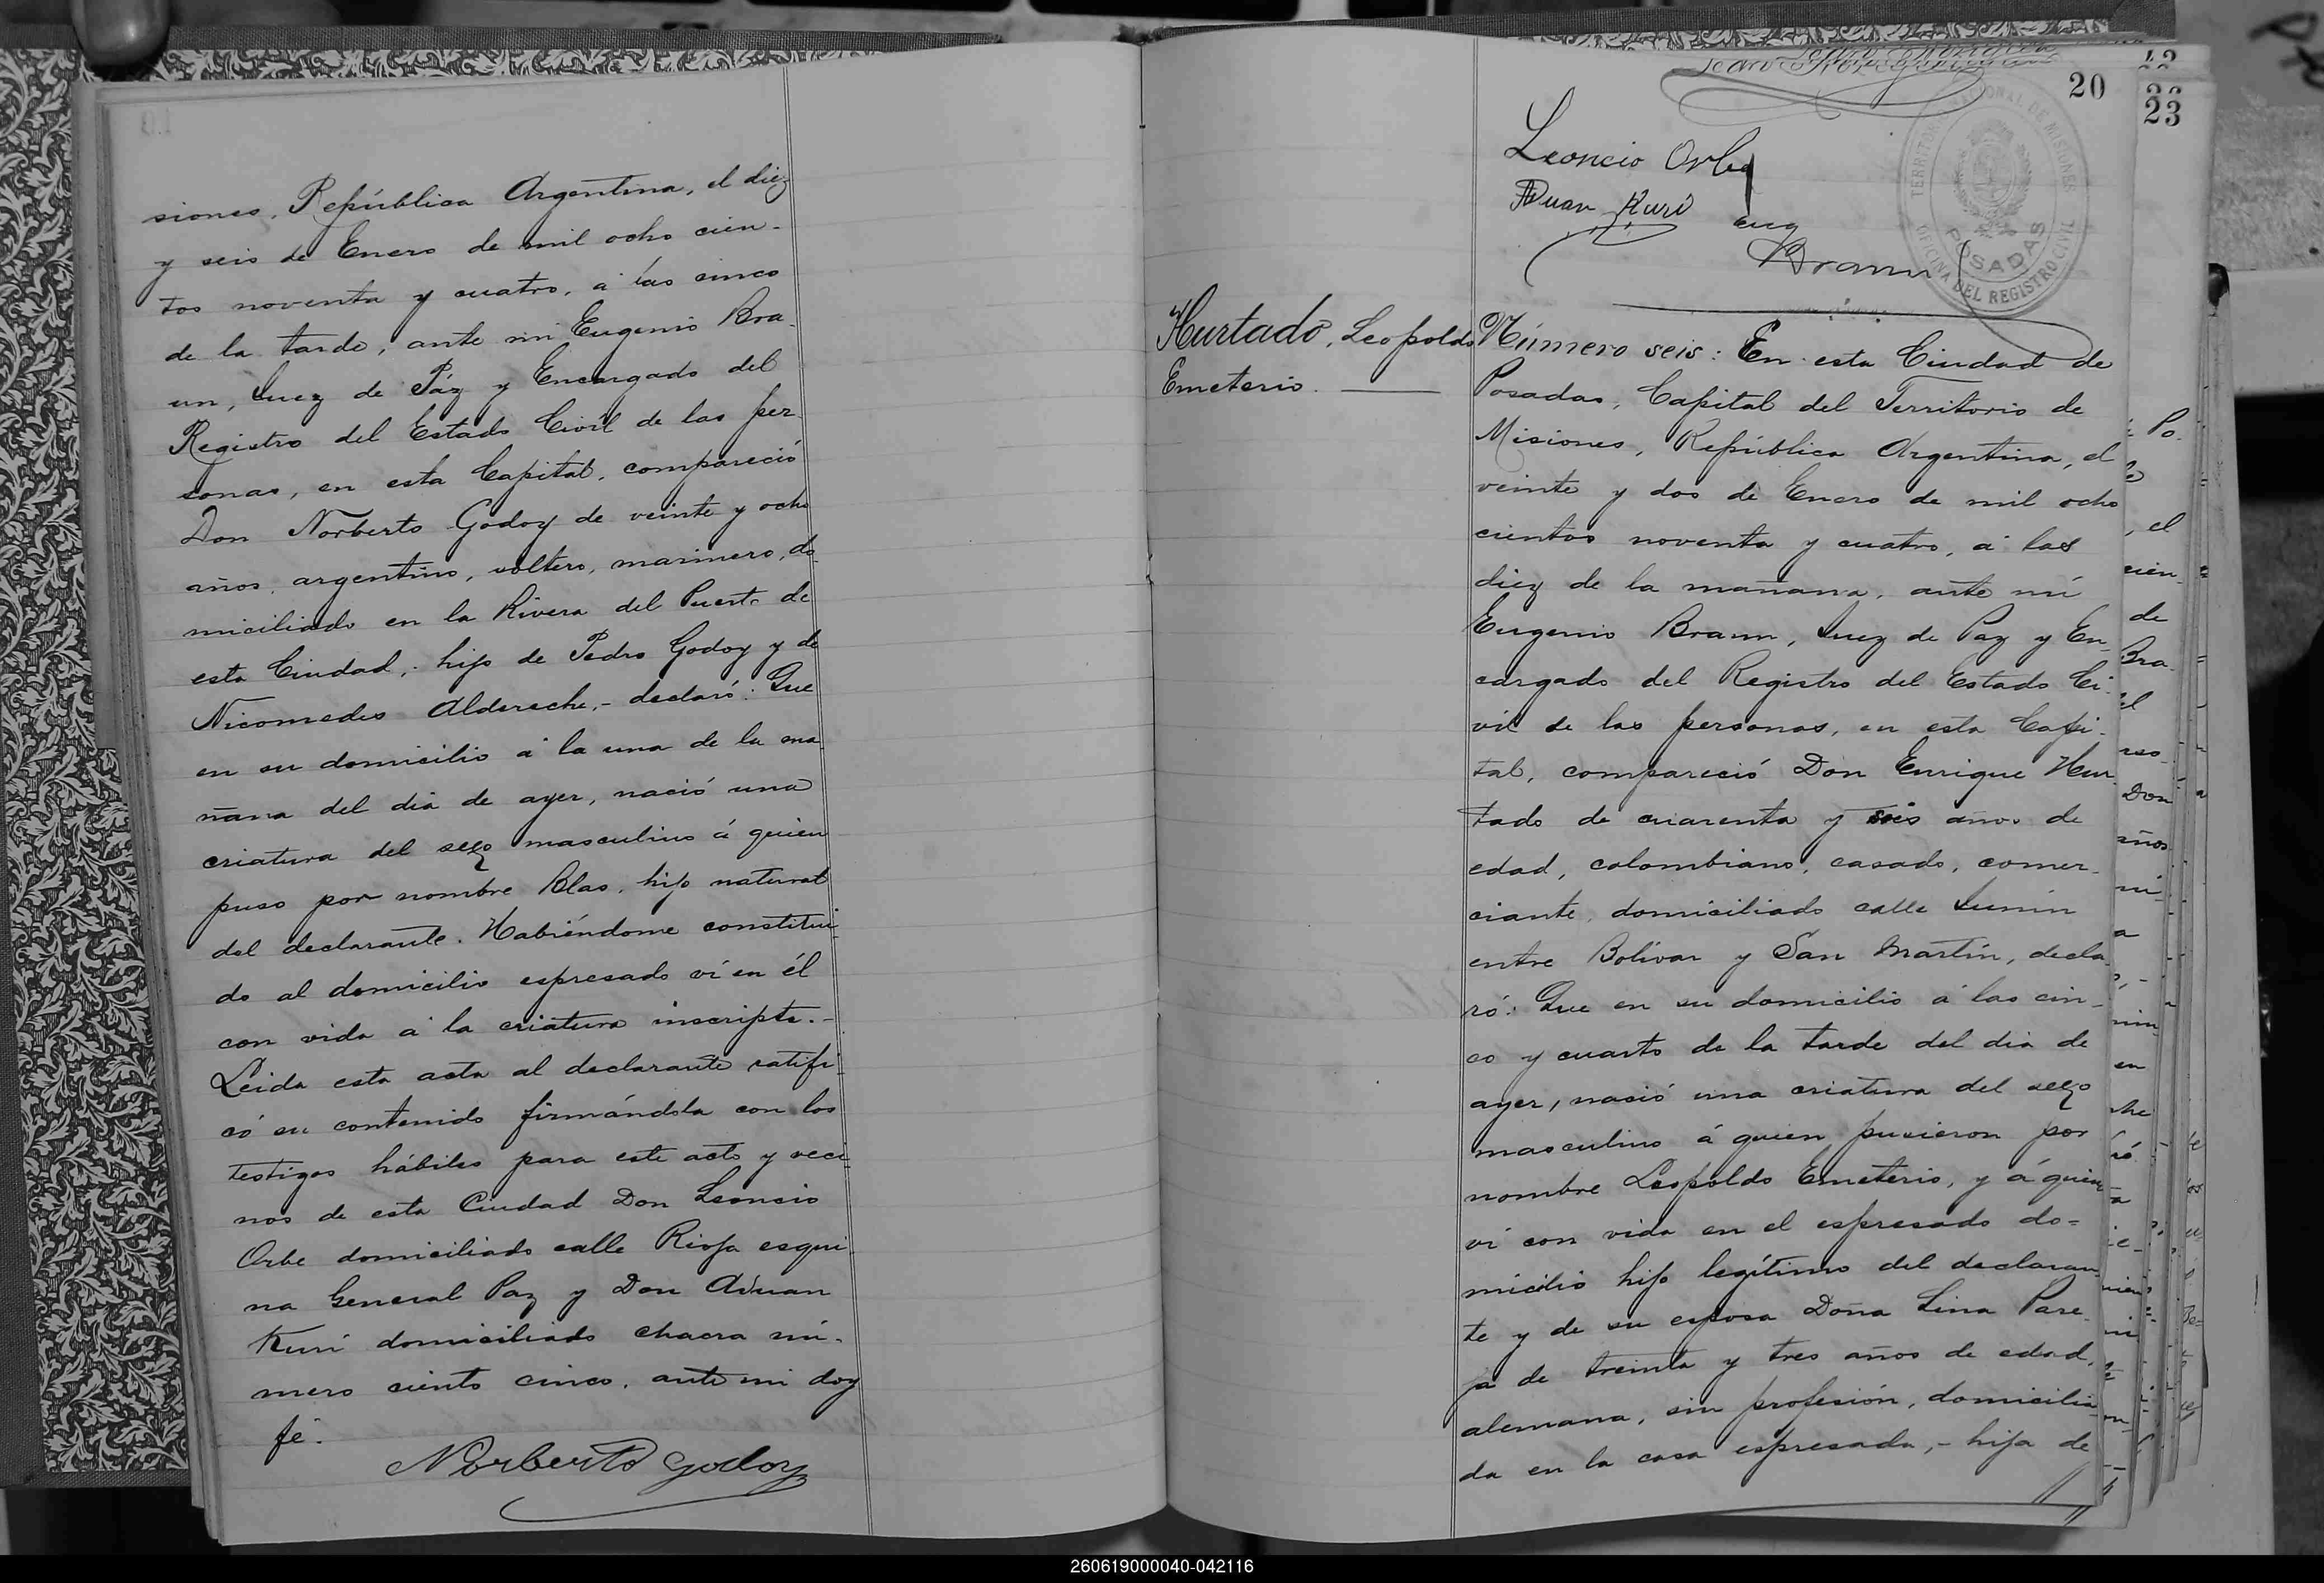 siones, República Argentina, el diez
y seis de Enero de mil ocho cien-
tos noventa y cuatro, á las cinco
de la tarde, ante mi Eugenio Bra-
un, Juez de Páz y Encargado del
Registro del Estado Civil de las per-
sonas, en esta Capital, compareció
Don Norberto Godoy de veinte y ocho
años, argentino, soltero, marinero, do-
miciliado en la Rivera del Puerto de
esta Ciudad, hijo de Pedro Godoy y de
Nicomedes Aldereche,- declaró: Que
en su domicilio á la una de la ma
ñana del dia de ayer, nació una
criatura del sexo masculino á quien
puso por nombre Blas, hijo natural
del declarante. Habiéndome constitui-
do al domicilio espresado ví en él
con vida á la criatura inscripta.-
Leida esta acta al declarante ratifi-
có su contenido firmándola con los
testigos hábiles para este acto y veci-
nos de esta Ciudad Don Leoncio
Orbe domiciliado calle Rioja esqui-
na General Paz y Don Aduan
Kuri domiciliado chacra nú-
mero ciento cinco, ante mi doy
fé.
Norberto Godoy
20
22
23
Leoncio Orbe
Aduan Kuri
Eug Braun
TERRITORIO NACIONAL DE MISIONES
POSADAS
OFICINA DEL REGISTRO CIVIL
Hurtado, Leopoldo
Emeterio.
Número seis: En esta Ciudad de
Posadas, Capital del Territorio de
Misiones, República Argentina, el
veinte y dos de Enero de mil ocho
cientos noventa y cuatro, á las
diez de la mañana, ante mí
Eugenio Braun, Juez de Paz y En-
cargado del Registro del Estado Ci-
vil de las personas, en esta Capi-
tal, compareció Don Enrique Hur-
tado de cuarenta y seis años de
edad, colombiano, casado, comer-
ciante, domiciliado calle Junín
entre Bolívar y San Martín, decla-
ró: Que en su domicilio á las cin-
co y cuarto de la tarde del dia de
ayer, nació una criatura del sexo
masculino á quien pusieron por
nombre Leopoldo Emeterio, y á quien
ví con vida en el espresado do=
micilio hijo legítimo del declaran-
te y de su esposa Doña Lina Pare-
ja de treinta y tres años de edad,
alemana, sin profesión, domicilia-
da en la casa espresada,- hija de
260619000040-042116